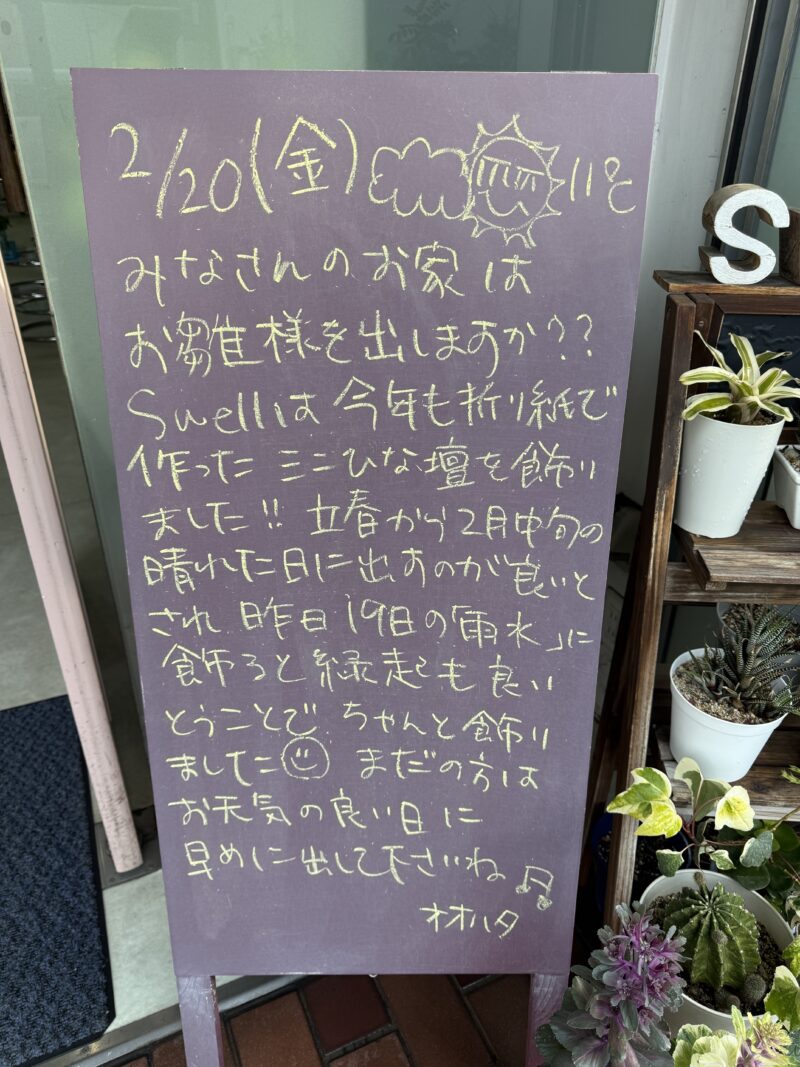 2/20(金) 11℃
みなさんのお家は
お雛様を出しますか??
Swellは今年も折り紙で
作ったミニひな壇を飾り
ました!! 立春から2月中旬の
晴れた日に出すのが良いと
され 昨日19日の「雨水」に
飾ると縁起も良い
とうことで、ちゃんと飾り
ました まだの方は
お天気の良い日に
早めに出して下さいね♫
オオハタ
S